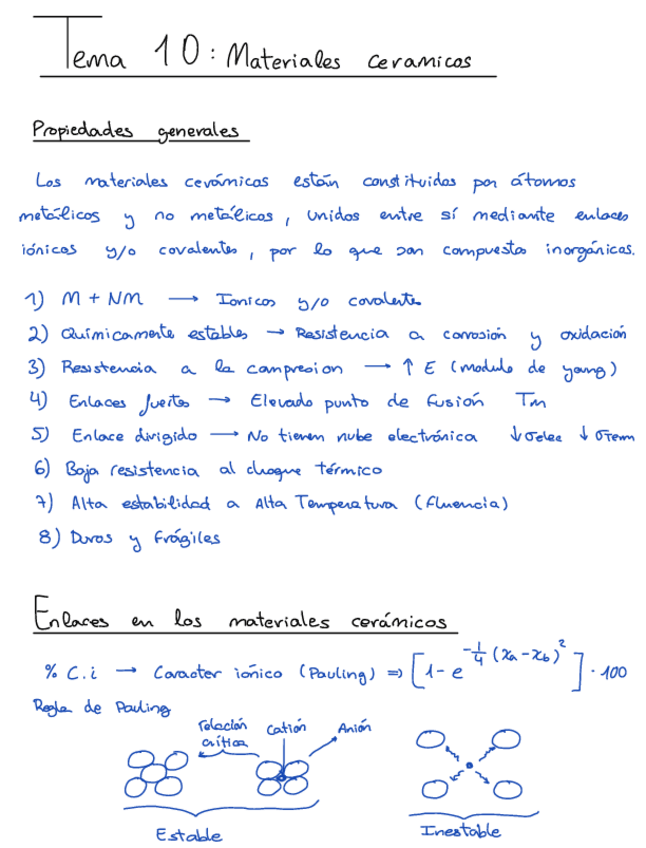 Tema 10: Materiales ceramicos
Propiedades generales
Los materiales cerámicos están constituidos por átomos
metálicos y no metálicos, unidos entre sí mediante enlaces
iónicos y/o covalentes, por lo que son compuestos inorgánicos.
1) M + NM → Ionicos y/o covalentes
2) Químicamente estables → Resistencia a corrosión y oxidación
3) Resistencia a la compresion → ↑ E (modulo de young)
4) Enlaces fuertes → Elevado punto de fusión Tm
5) Enlace dirigido → No tienen nube electrónica ↓σelec ↓σTerm
6) Baja resistencia al choque térmico
7) Alta estabilidad a Alta Temperatura (fluencia)
8) Duros y frágiles
Enlaces en los materiales cerámicos
% C.i → Caracter iónico (Pauling) => [1 - e^{-1/4 (xa - xb)^2}] · 100
Regla de Pauling
relación crítica Catión Anión
Estable Inestable